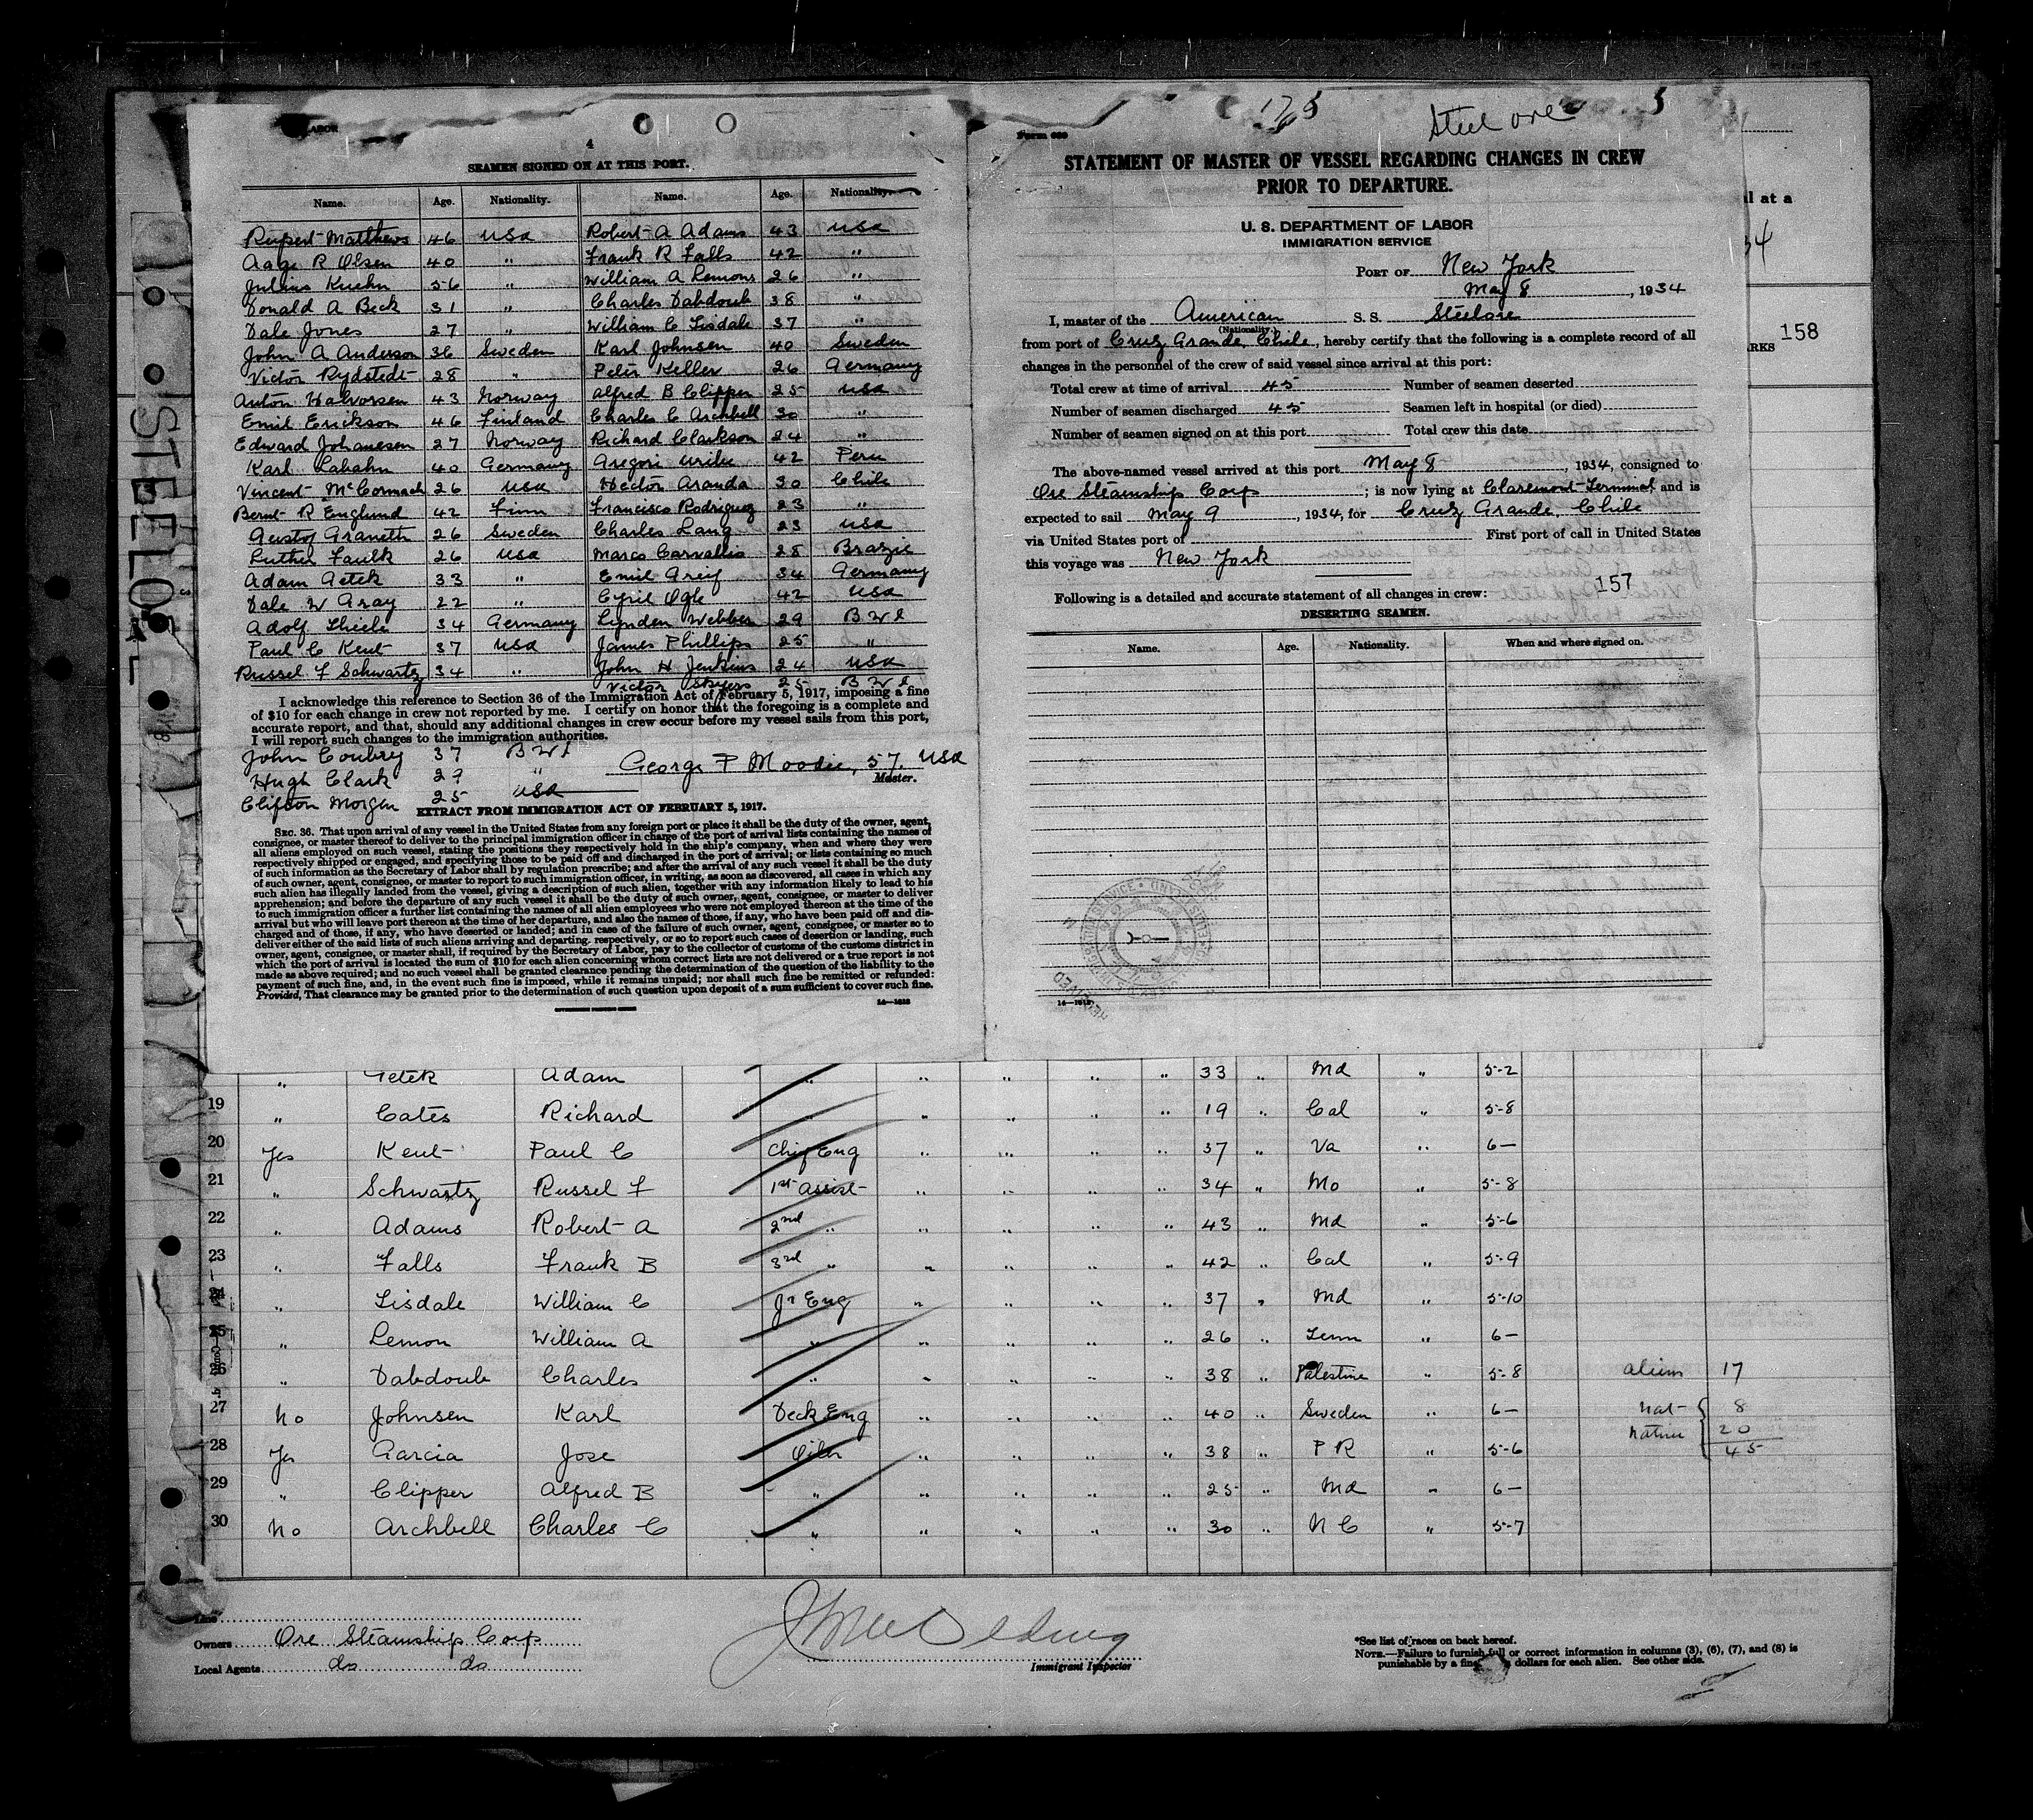 LABOR
4
SEAMEN SIGNED ON AT THIS PORT.
Name. Age. Nationality. Name. Age. Nationality.
Rupert Matthews 46 USA Robert A Adams 43 USA
Aage R Olsen 40 " Frank R Falls 42 "
Julius Kuehn 56 " William A Lemons 26 "
Donald A Beck 31 " Charles Dabdoub 38 "
Dale Jones 27 " William C Tisdale 37 "
John A Anderson 36 Sweden Karl Johnsen 40 Sweden
Victor Rydstedt 28 " Peter Keller 26 Germany
Anton Halvorsen 43 Norway Alfred B Clipper 25 USA
Emil Erickson 46 Finland Charles C Archbell 30 "
Edward Johanesen 27 Norway Richard Clarkson 24 "
Karl Labahn 40 Germany Gregori Uribe 42 Peru
Vincent McCormack 26 USA Hector Aranda 30 Chile
Bernt R Englund 42 Finn Francisco Rodriguez 23 "
Gustof Graneth 26 Sweden Charles Lang 23 USA
Luther Faulk 26 USA Marco Carvallis 28 Brazie
Adam Getek 33 " Emil Greif 34 Germany
Dale W Gray 22 " Cyril Ogle 42 USA
Adolf Thiele 34 Germany Lynden Webber 29 B W I
Paul C Kent 37 USA James Phillips 25 "
Russel F Schwartz 34 " John H Jenkins 24 USA
Victor Skyers 25 B W I
I acknowledge this reference to Section 36 of the Immigration Act of February 5, 1917, imposing a fine
of $10 for each change in crew not reported by me. I certify on honor that the foregoing is a complete and
accurate report, and that, should any additional changes in crew occur before my vessel sails from this port,
I will report such changes to the immigration authorities.
John Coubry 37 B W I
Hugh Clark 27 "
Clifton Morgan 25 USA
George P Moodie, 57. USA
Master.
EXTRACT FROM IMMIGRATION ACT OF FEBRUARY 5, 1917.
SEC. 36. That upon arrival of any vessel in the United States from any foreign port or place it shall be the duty of the owner, agent,
consignee, or master thereof to deliver to the principal immigration officer in charge of the port of arrival lists containing the names of
all aliens employed on such vessel, stating the positions they respectively hold in the ship's company, when and where they were
respectively shipped or engaged, and specifying those to be paid off and discharged in the port of arrival; or lists containing so much
of such information as the Secretary of Labor shall by regulation prescribe; and after the arrival of any such vessel it shall be the duty
of such owner, agent, consignee, or master to report to such immigration officer, in writing, as soon as discovered, all cases in which any
such alien has illegally landed from the vessel, giving a description of such alien, together with any information likely to lead to his
apprehension; and before the departure of any such vessel it shall be the duty of such owner, agent, consignee, or master to deliver
to such immigration officer a further list containing the names of all alien employees who were not employed thereon at the time of the
arrival but who will leave port thereon at the time of her departure, and also the names of those, if any, who have been paid off and dis-
charged and of those, if any, who have deserted or landed; and in case of the failure of such owner, agent, consignee, or master so to
deliver either of the said lists of such aliens arriving and departing, respectively, or so to report such cases of desertion or landing, such
owner, agent, consignee, or master shall, if required by the Secretary of Labor, pay to the collector of customs of the customs district in
which the port of arrival is located the sum of $10 for each alien concerning whom correct lists are not delivered or a true report is not
made as above required; and no such vessel shall be granted clearance pending the determination of the question of the liability to the
payment of such fine, and, in the event such fine is imposed, while it remains unpaid; nor shall such fine be remitted or refunded:
Provided, That clearance may be granted prior to the determination of such question upon deposit of a sum sufficient to cover such fine.
14—1613
Form 689
Steel ore
STATEMENT OF MASTER OF VESSEL REGARDING CHANGES IN CREW
PRIOR TO DEPARTURE.
U. S. DEPARTMENT OF LABOR
IMMIGRATION SERVICE
PORT OF New York
May 8, 1934
I, master of the American S. S. Steelore
(Nationality.)
from port of Cruz Grande, Chile, hereby certify that the following is a complete record of all
changes in the personnel of the crew of said vessel since arrival at this port:
Total crew at time of arrival 45 Number of seamen deserted
Number of seamen discharged 45 Seamen left in hospital (or died)
Number of seamen signed on at this port Total crew this date
The above-named vessel arrived at this port May 8, 1934, consigned to
Ore Steamship Corp; is now lying at Claremont Terminal and is
expected to sail May 9, 1934, for Cruz Grande, Chile
via United States port of First port of call in United States
this voyage was New York
157
Following is a detailed and accurate statement of all changes in crew:
DESERTING SEAMEN.
Name. Age. Nationality. When and where signed on.
14—1613
RECEIVED
l at a
34
RKS 158
STEELORE
" Getek Adam " " " " " 33 " Md " 5-2
19 " Cates Richard " " " " " 19 " Cal " 5-8
20 Yes Kent Paul C Chif Eng " " " " 37 " Va " 6—
21 " Schwartz Russel F 1st Assist " " " " 34 " Mo " 5-8
22 " Adams Robert A 2nd " " " " " 43 " Md " 5-6
23 " Falls Frank B 3rd " " " " " 42 " Cal " 5-9
24 " Tisdale William C Jr Eng " " " " 37 " Md " 5-10
25 " Lemon William A " " " " " 26 " Tenn " 6—
26 " Dabdoub Charles " " " " " 38 " Palestine " 5-8 Aliens 17
27 No Johnsen Karl Deck Eng " " " " 40 " Sweden " 6— Nat 8
28 Yes Garcia Jose Oiler " " " " 38 " P R " 5-6 Native 20
45
29 " Clipper Alfred B " " " " " 25 " Md " 6—
30 No Archbell Charles C " " " " " 30 " N C " 5-7
Line
Owners Ore Steamship Corp
Local Agents do do
Immigrant Inspector
*See list of races on back hereof.
NOTE.—Failure to furnish full or correct information in columns (3), (6), (7), and (8) is
punishable by a fine dollars for each alien. See other side.